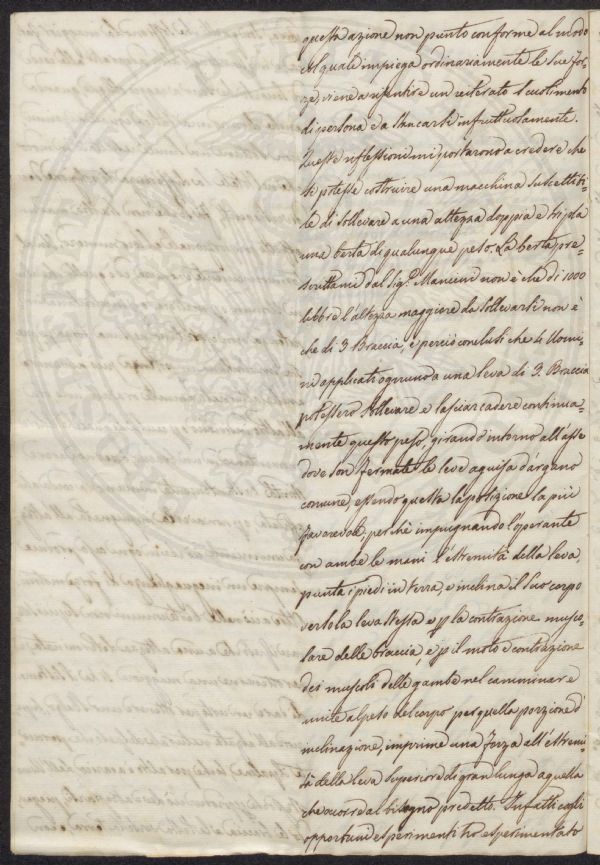 questa azione non punto conforme al modo
col quale impiega ordinariamente le sue for-
ze, viene a risentire un reiterato scuotimento
di persona e a stancarsi infruttuosamente.
Queste riflessioni mi portarono a credere che
si potesse costruire una macchina suscettibi-
le di sollevare a una altezza doppia e tripla
una berta di qualunque peso. La berta pre-
scrittami dal Sig.r Mancini non è che di 1000
libbre l'altezza maggiore da sollevarsi non è
che di 3 Braccia, e perciò conclusi che 4 Uomi-
ni applicati ognuno a una leva di 3. Braccia
potessero sollevare e lasciar cadere continua-
mente questo peso, girando intorno all'asse
dove son fermate le leve a guisa d'argano
comune, essendo questa la posizione la più
favorevole, perchè impugnando l'operante
con ambe le mani l'estremità della leva,
punta i piedi in terra, e inclina il suo corpo
verso la leva stessa e p la contrazione musco-
lare delle braccia, e p il moto e contrazione
dei muscoli delle gambe nel camminare
unite al peso del corpo per quella porzione d'
inclinazione, imprime una forza all'estremi-
tà della leva superiore di gran lunga a quella
che occorre al bisogno predetto. Infatti cogli
opportuni esperimenti ho esperimentato